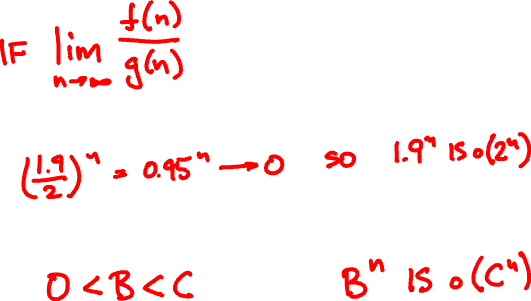 IF lim n→∞ f(n)/g(n)
(1.9/2)ⁿ = 0.95ⁿ → 0 so 1.9ⁿ IS o(2ⁿ)
0 < B < C Bⁿ IS o(Cⁿ)